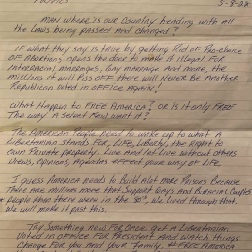 5-8-22
Man where is our country heading with all
the laws being passed and changed?
If what they say is true by getting rid of Pro-choice
of Abortions opens the door to make it illegal for
Interracial marriages, Gay marriage and more, the
millions it will piss off there will never be another
Republican voted in office again!
What Happen to Free America! Or is it only Free
The way a select few want it?
The American People need to wake up to what a
Libertarian stands for, Life, Liberty, the right to
own Private property. Live and let live without others
views, opinions, Agendas effect your way of life.
I guess America needs to build alot more Prisons Because
There are millions more that support Gays and Biracial Couples
People than there were in the 50's, we lived through that
we will make it past this.
Try something New for once get a Libertarian
voted in office for President and watch things
Change for you and your family. #Free America